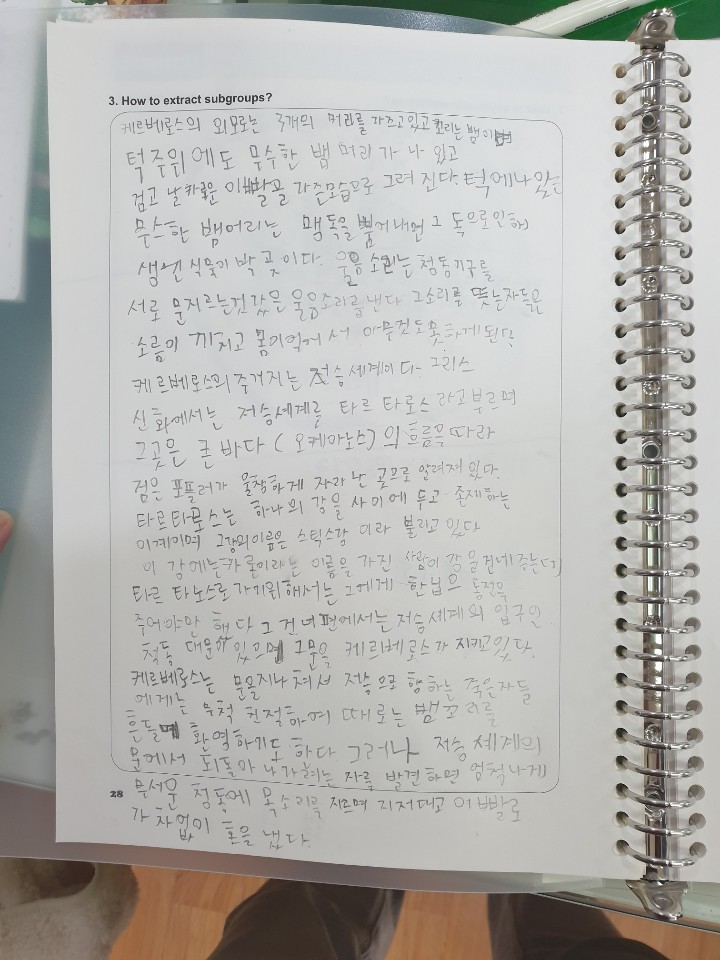 3. How to extract subgroups?
케르베로스의 외모로는 3개의 머리를 가즈고있고 꼬리는 뱀이며
턱주위에도 무수한 뱀 머리가 나 있고
검고 날카로운 이빨을 가즌모습으로 그려 진다. 턱에나 있는
무수한 뱀머리는 맹독을 뿜어내면 그 독으로인해
생긴 식물이 박곳이다. 울음소리는 청동기구를
서로 문지르는건 같은 울음소리를 낸다 그소리를 뜻는자들은
소름이 끼치고 몸이억어서 아무것도못하게된단
케르베로스의 주거지는 저승세계이다. 그리스
신화에서는 저승세계를 타르타로스 라고부르며
그곳은 큰 바다 (오케아노스)의 흐름을따라
검은 포플러가 울창하게 자라 난 곳으로 알려져 있다.
타르타로스는 하나의 강을 사이에 두고 존재하는
이계이며 그강의이름은 스틱스강 이라 불리고있다
이 강에는카론이라는 이름을 가진 사람이 강을건네주는데
타르 타노스로가기위해서는 그에게 한닢으 동전을
주어야만 해다 그 건너편에서는 저승세계의 입구인
청동 대문이 있으며 그문을 케르베로스가 지키고있다.
케르베로스는 문을지나쳐서 저승으로 향하는 죽은자들
에게는 무척 친절하여 때로는 뱀꼬리를
흔들며 환영하기도 하다 그러나 저승세계의
문에서 되돌아 나가려는 자를 발견하면 엄청나게
무서운 청동에 목소리를 지르며 지저대고 이빨로
가차없이 혼을 냈다.
28